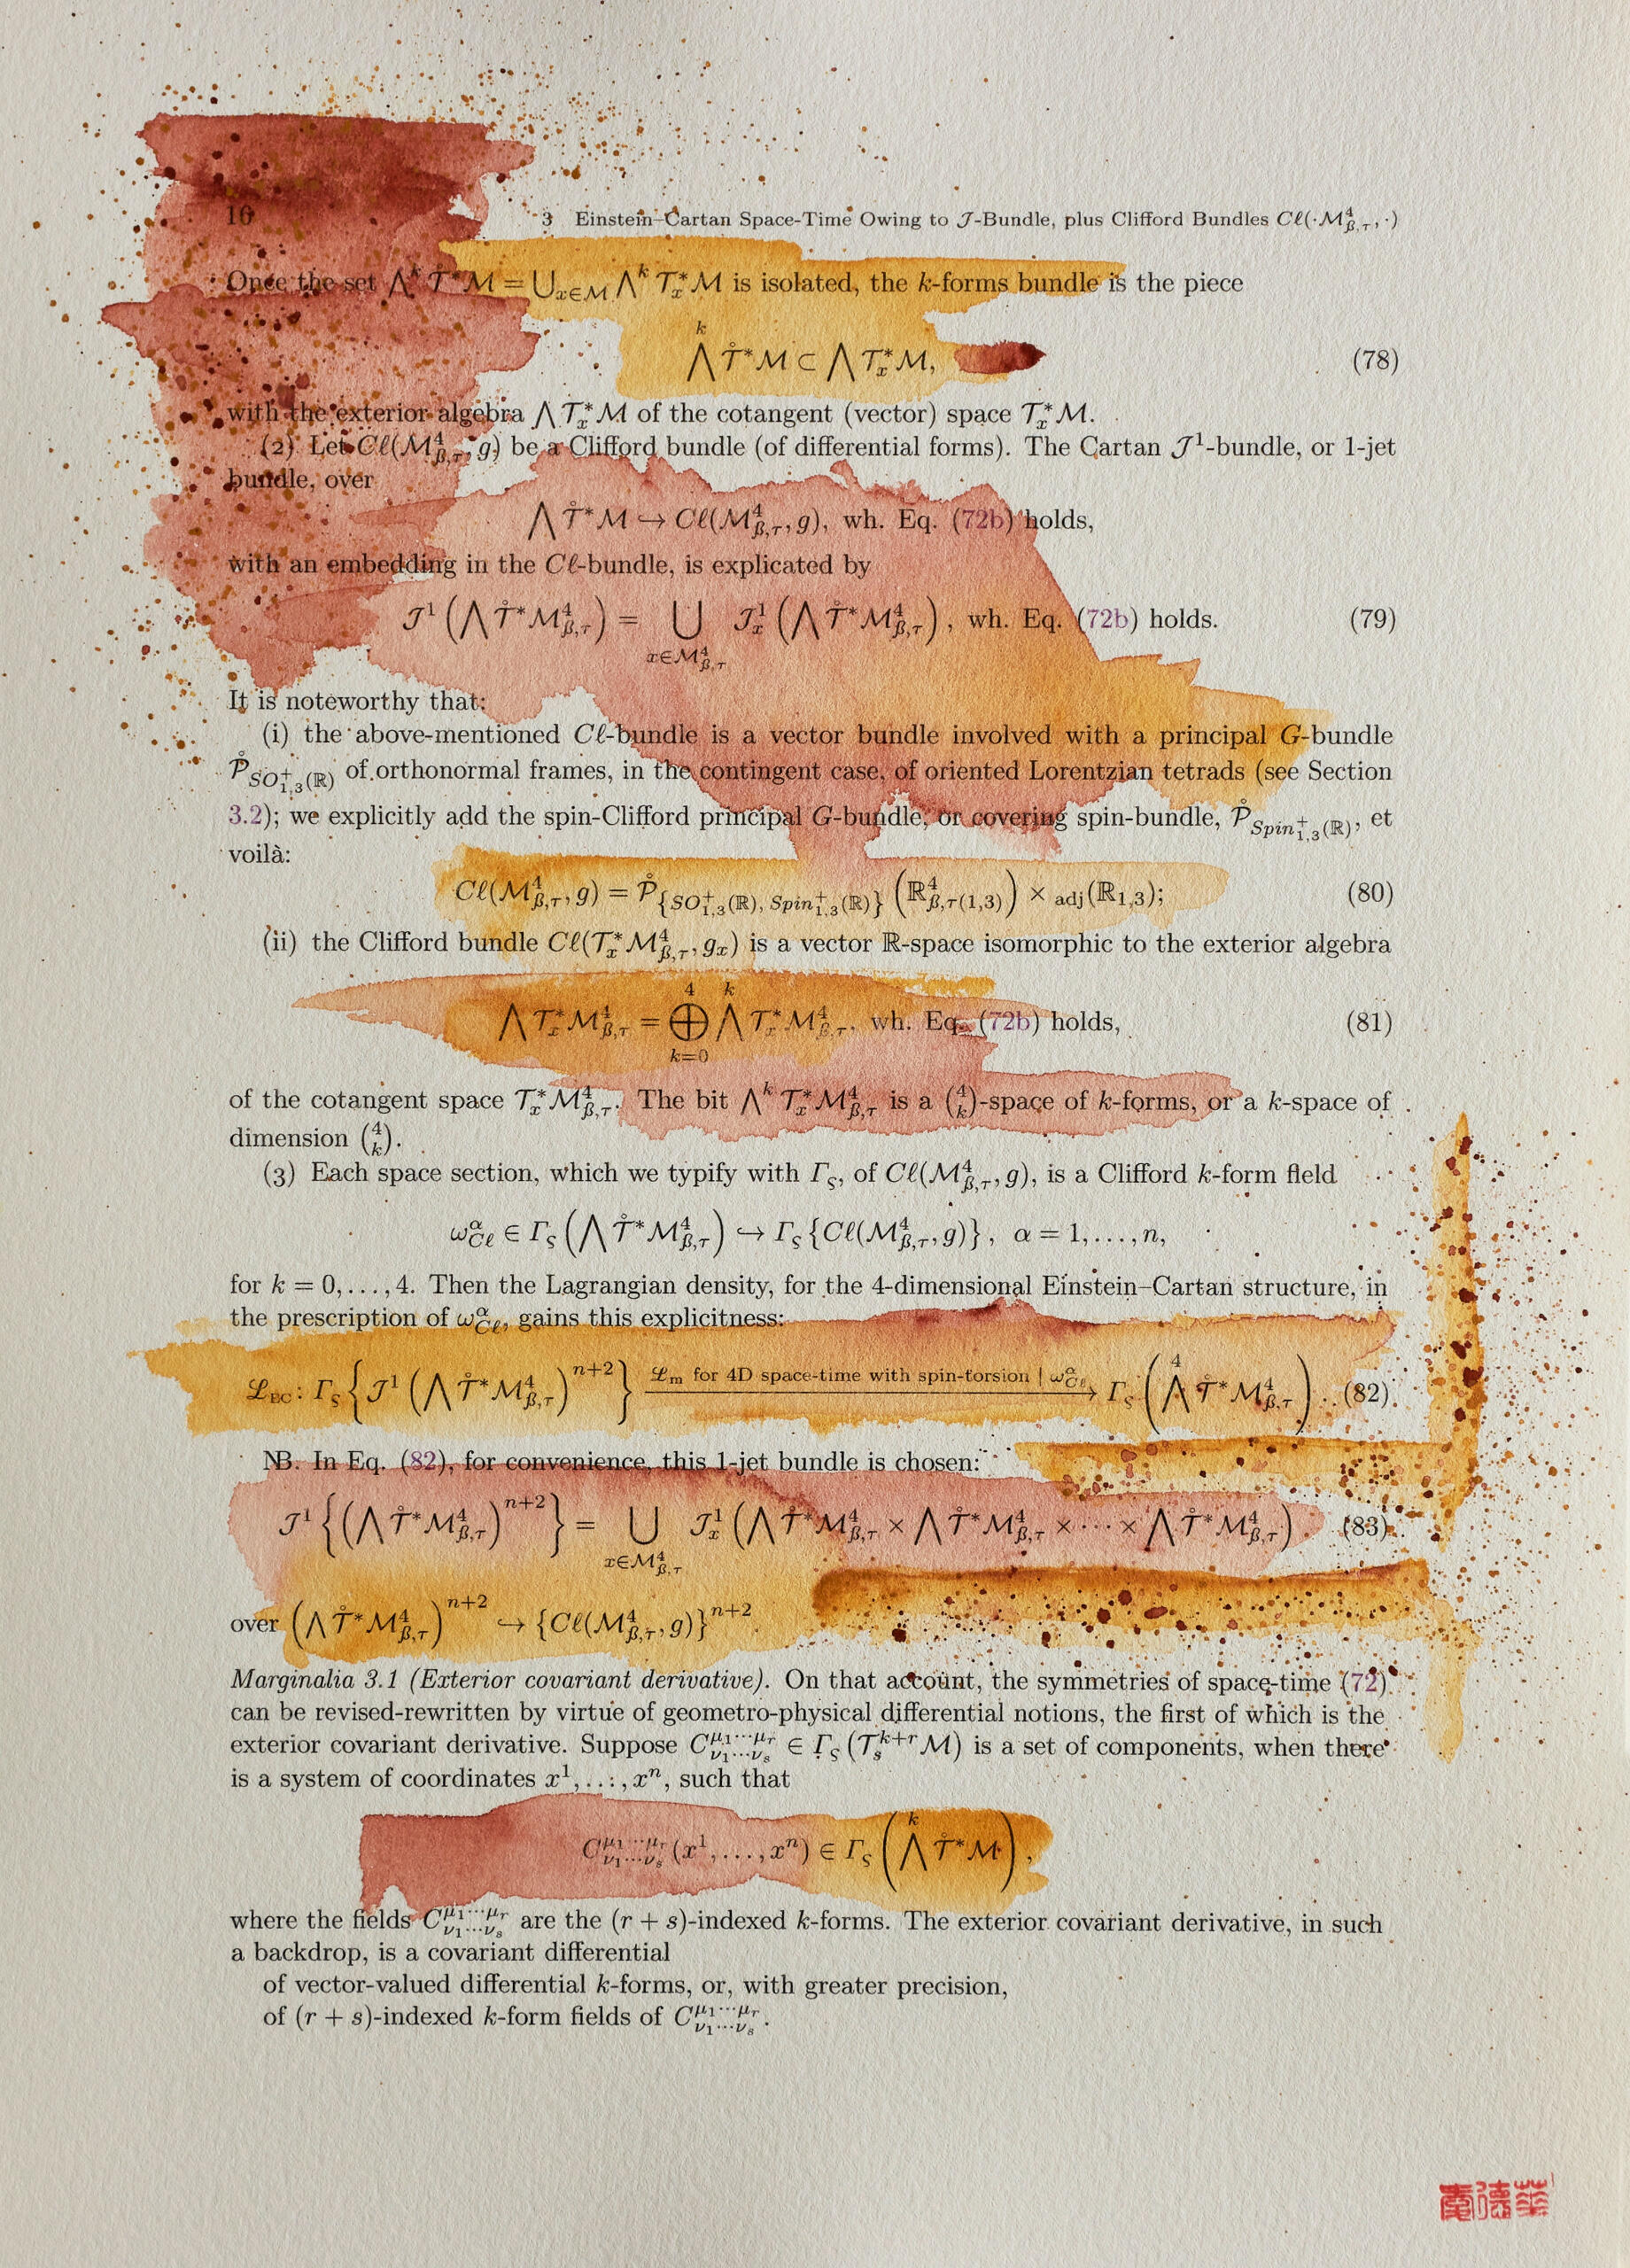 16 3 Einstein–Cartan Space-Time Owing to 𝒥-Bundle, plus Clifford Bundles 𝒞ℓ(·ℳ⁴_{ß,τ}, ·)
Once the set ⋀ᵏ 𝒯̊*ℳ = ⋃_{x∈ℳ} ⋀ᵏ 𝒯ₓ*ℳ is isolated, the k-forms bundle is the piece
⋀ᵏ 𝒯̊*ℳ ⊂ ⋀ 𝒯ₓ*ℳ, (78)
with the exterior algebra ⋀ 𝒯ₓ*ℳ of the cotangent (vector) space 𝒯ₓ*ℳ.
(2) Let 𝒞ℓ(ℳ⁴_{ß,τ}, g) be a Clifford bundle (of differential forms). The Cartan 𝒥¹-bundle, or 1-jet
bundle, over
⋀ 𝒯̊*ℳ ↪ 𝒞ℓ(ℳ⁴_{ß,τ}, g), wh. Eq. (72b) holds,
with an embedding in the 𝒞ℓ-bundle, is explicated by
𝒥¹ (⋀ 𝒯̊*ℳ⁴_{ß,τ}) = ⋃_{x∈ℳ⁴_{ß,τ}} 𝒥ₓ¹ (⋀ 𝒯̊*ℳ⁴_{ß,τ}), wh. Eq. (72b) holds. (79)
It is noteworthy that:
(i) the above-mentioned 𝒞ℓ-bundle is a vector bundle involved with a principal G-bundle
𝒫̊_{SO⁺_{1,3}(ℝ)} of orthonormal frames, in the contingent case, of oriented Lorentzian tetrads (see Section
3.2); we explicitly add the spin-Clifford principal G-bundle, or covering spin-bundle, 𝒫̊_{Spin⁺_{1,3}(ℝ)}, et
voilà:
𝒞ℓ(ℳ⁴_{ß,τ}, g) = 𝒫̊_{{SO⁺_{1,3}(ℝ), Spin⁺_{1,3}(ℝ)}} (ℝ⁴_{ß,τ(1,3)}) × _{adj}(ℝ_{1,3}); (80)
(ii) the Clifford bundle 𝒞ℓ(𝒯ₓ*ℳ⁴_{ß,τ}, gₓ) is a vector ℝ-space isomorphic to the exterior algebra
⋀ 𝒯ₓ*ℳ⁴_{ß,τ} = ⨁_{k=0}^{4} ⋀ᵏ 𝒯ₓ*ℳ⁴_{ß,τ}, wh. Eq. (72b) holds, (81)
of the cotangent space 𝒯ₓ*ℳ⁴_{ß,τ}. The bit ⋀ᵏ 𝒯ₓ*ℳ⁴_{ß,τ} is a (4 k)-space of k-forms, or a k-space of
dimension (4 k).
(3) Each space section, which we typify with Γ_ς, of 𝒞ℓ(ℳ⁴_{ß,τ}, g), is a Clifford k-form field
ω^α_{𝒞ℓ} ∈ Γ_ς (⋀ 𝒯̊*ℳ⁴_{ß,τ}) ↪ Γ_ς {𝒞ℓ(ℳ⁴_{ß,τ}, g)}, α = 1, . . . , n,
for k = 0, . . . , 4. Then the Lagrangian density, for the 4-dimensional Einstein–Cartan structure, in
the prescription of ω^α_{𝒞ℓ}, gains this explicitness:
ℒ_{EC} : Γ_ς {𝒥¹ (⋀ 𝒯̊*ℳ⁴_{ß,τ})^{n+2}} ℒ_m for 4D space-time with spin-torsion | ω^α_{𝒞ℓ} ⟶ Γ_ς (⋀⁴ 𝒯̊*ℳ⁴_{ß,τ}). (82)
NB. In Eq. (82), for convenience, this 1-jet bundle is chosen:
𝒥¹ {(⋀ 𝒯̊*ℳ⁴_{ß,τ})^{n+2}} = ⋃_{x∈ℳ⁴_{ß,τ}} 𝒥ₓ¹ (⋀ 𝒯̊*ℳ⁴_{ß,τ} × ⋀ 𝒯̊*ℳ⁴_{ß,τ} × · · · × ⋀ 𝒯̊*ℳ⁴_{ß,τ}). (83)
over (⋀ 𝒯̊*ℳ⁴_{ß,τ})^{n+2} ↪ {𝒞ℓ(ℳ⁴_{ß,τ}, g)}^{n+2}
Marginalia 3.1 (Exterior covariant derivative). On that account, the symmetries of space-time (72)
can be revised-rewritten by virtue of geometro-physical differential notions, the first of which is the
exterior covariant derivative. Suppose C^{μ₁···μ_r}_{ν₁···ν_s} ∈ Γ_ς (𝒯_s^{k+r} ℳ) is a set of components, when there
is a system of coordinates x¹, . . . , xⁿ, such that
C^{μ₁···μ_r}_{ν₁···ν_s} (x¹, . . . , xⁿ) ∈ Γ_ς (⋀ᵏ 𝒯̊*ℳ),
where the fields C^{μ₁···μ_r}_{ν₁···ν_s} are the (r + s)-indexed k-forms. The exterior covariant derivative, in such
a backdrop, is a covariant differential
of vector-valued differential k-forms, or, with greater precision,
of (r + s)-indexed k-form fields of C^{μ₁···μ_r}_{ν₁···ν_s}.